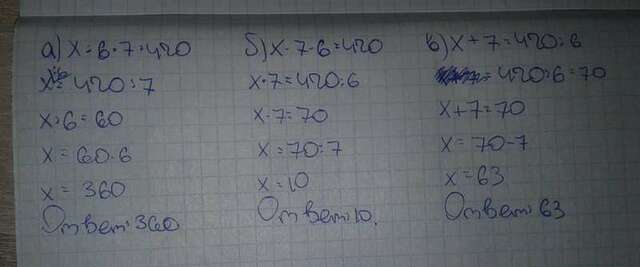 а) x:6·7=420
x:6=420:7
x:6=60
x=60·6
x=360
Ответ: 360
б) x·7·6=420
x·7=420:6
x·7=70
x=70:7
x=10
Ответ: 10.
в) x+7=420:6
420:6=70
x+7=70
x=70-7
x=63
Ответ: 63